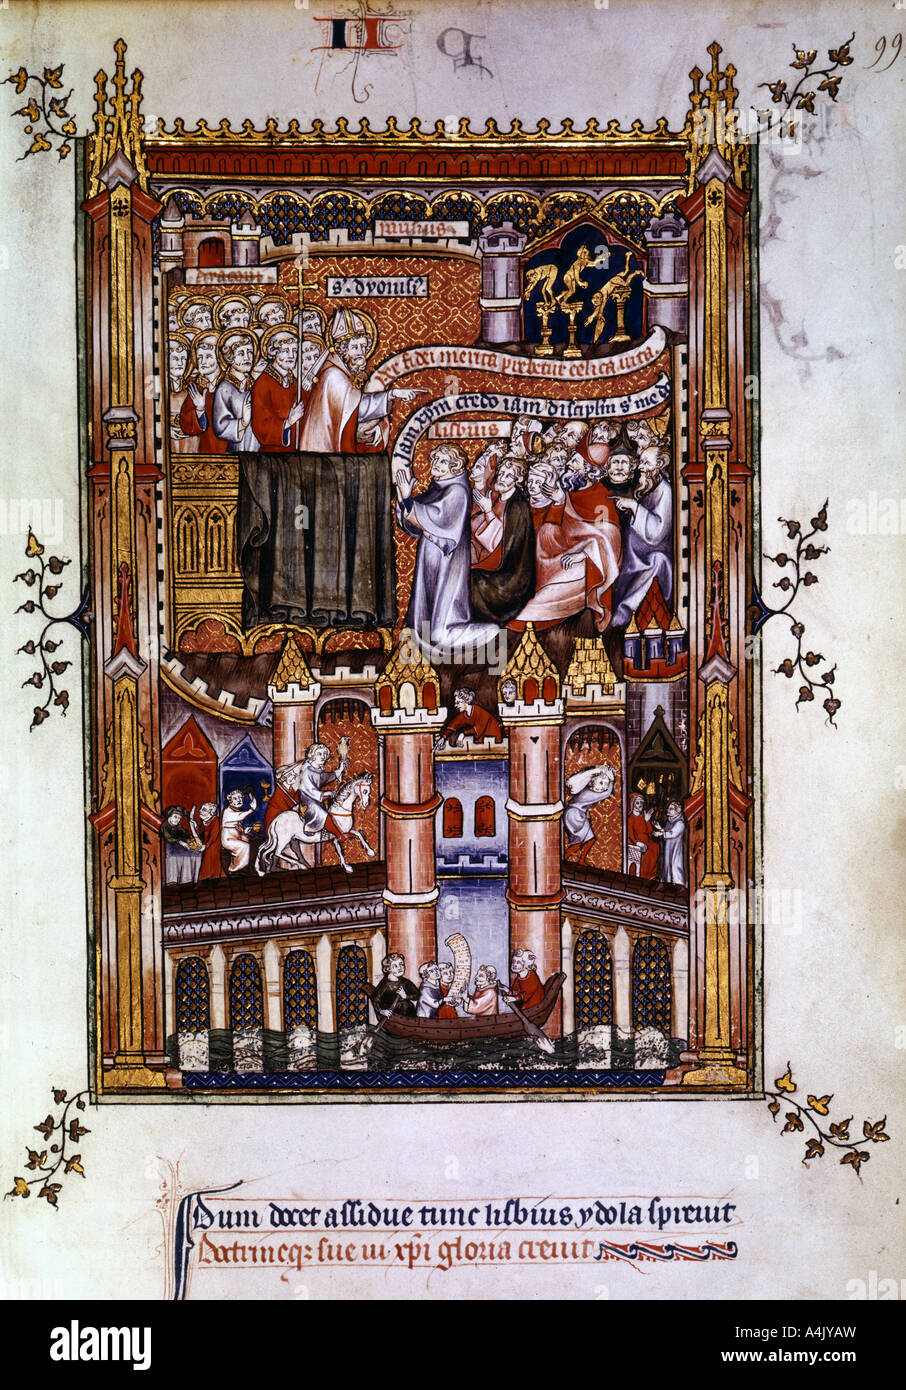 99
parisius
s. dyonisi9.
Per fidei merita prebetur celica uita
Iam xpm credo iam disciplin s me d
lisbius
Dum docet assidue tunc lisbius ydola spreuit
Doctrineq3 sue ui xpi gloria creuit
alamy
Image ID: A4JYAW
www.alamy.com